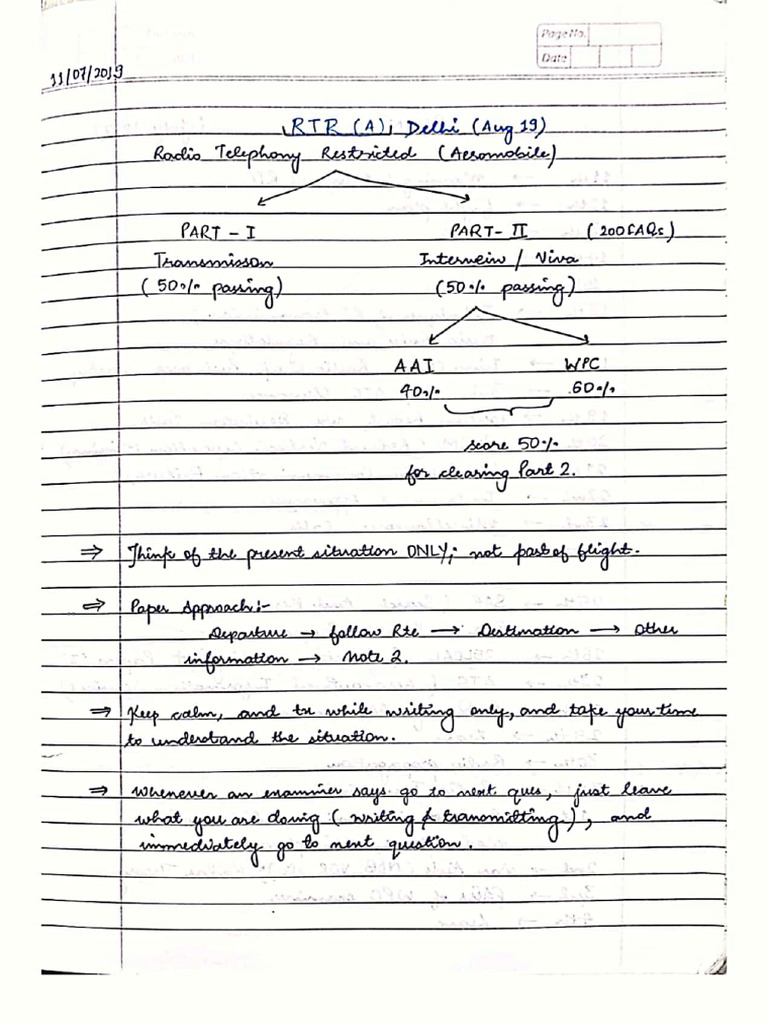 Page No.
Date
11/07/2019
RTR (A), Delhi (Aug 19)
Radio Telephony Restricted (Aeromobile)
PART - I PART - II (200 FAQs)
Transmisson Interwein / Viva
(50% passing) (50% passing)
AAI WPC
40% 60%
score 50%
for clearing Part 2.
⇒ Think of the present situation ONLY; not past of flight.
⇒ Paper Approach:-
Departure → follow Rte → Destination → Other
information → Note 2.
⇒ Keep calm, and tx while writing only, and take your time
to understand the situation.
⇒ Whenever an examiner says go to next ques, just leave
what you are doing (writing & transmitting), and
immediately go to next question.